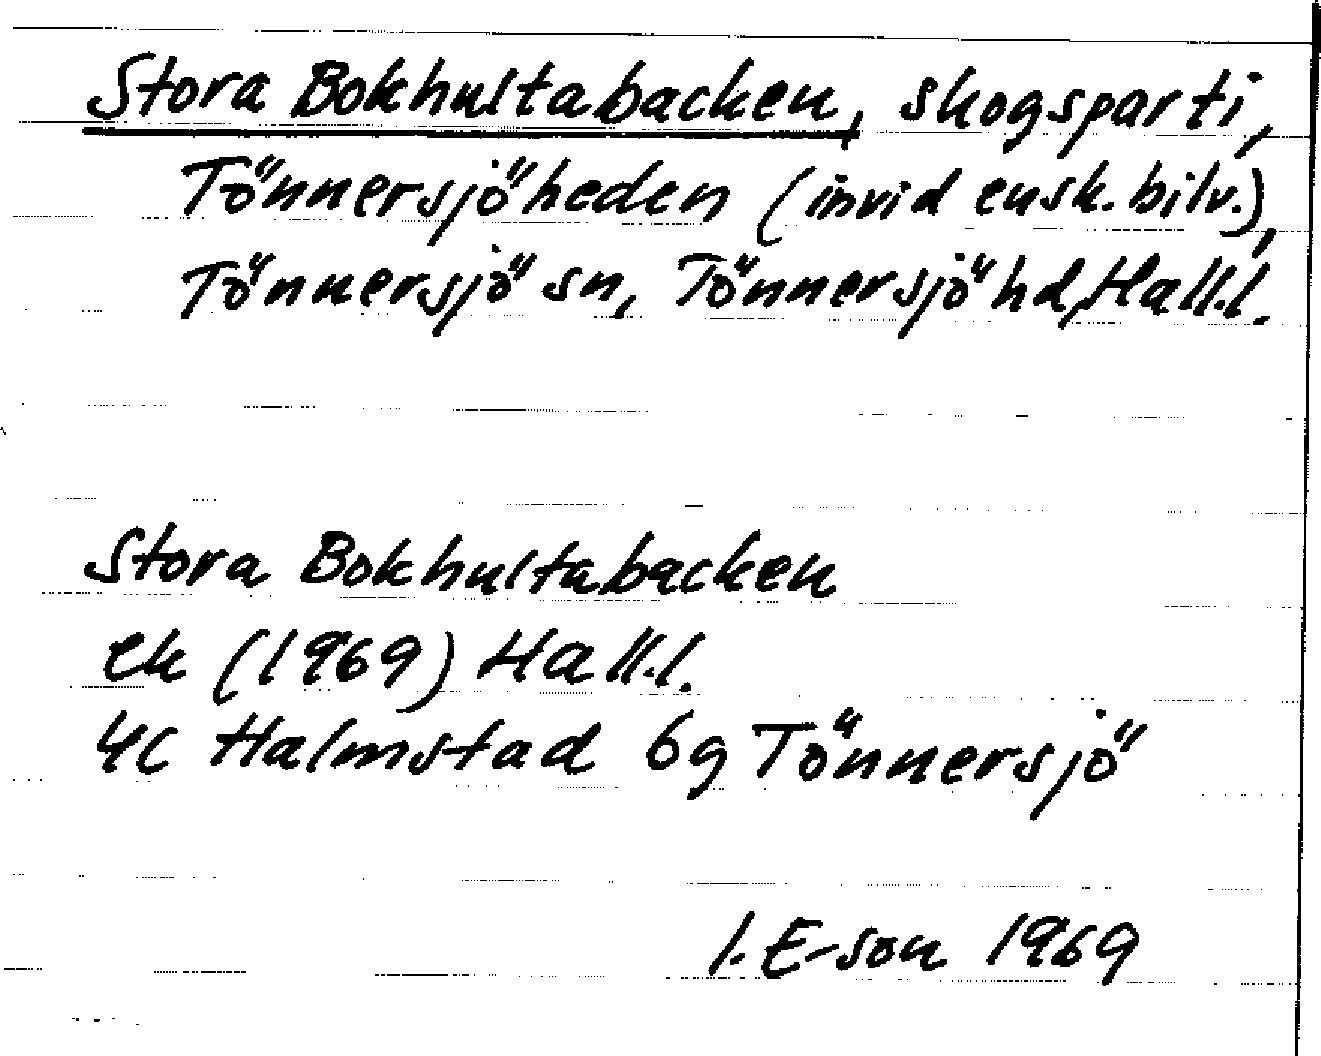 Stora Bokhultabacken, skogsparti,
Tönnersjöheden (invid ensk. bilv.),
Tönnersjö sn, Tönnersjö hd, Hall.l.
Stora Bokhultabacken
ek (1969) Hall.l.
4C Halmstad 6g Tönnersjö
I. E-son 1969